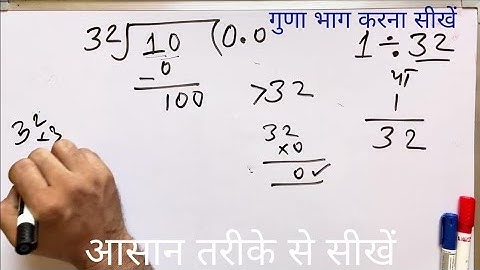 गुणा भाग करना सीखें
32 10 (0.0
- 0
100
>32
32
×0
0 ✓
1 ÷ 32
या
1
32
32
×3
आसान तरीके से सीखें